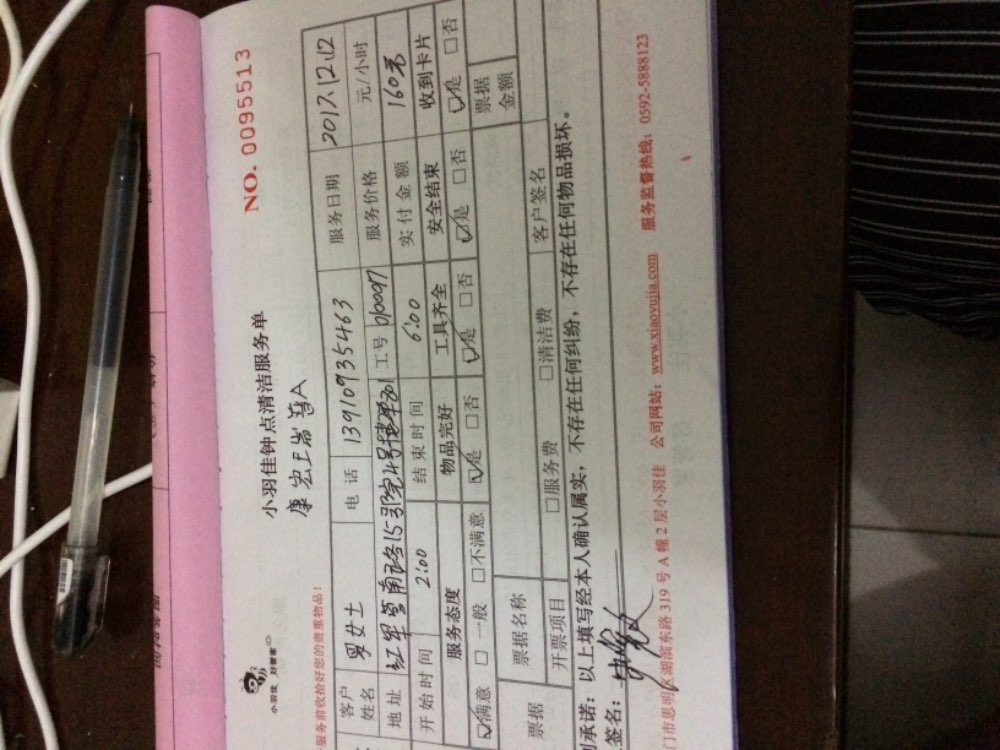 NO. 0095513
小羽佳钟点清洁服务单
小羽佳 好管家
服务前收拾好您的贵重物品!
客户姓名 电话 13910935463 服务日期 2017.12.12
地址 工号 服务价格 元/小时
开始时间 2:00 结束时间 6:00 实付金额 160元
服务态度 物品完好 工具齐全 安全结束 收到卡片
☑满意 □一般 □不满意 ☑是 □否 ☑是 □否 ☑是 □否 ☑是 □否
票据 票据名称 票据金额
开票项目 □服务费 □清洁费 客户签名
承诺:以上填写经本人确认属实,不存在任何纠纷,不存在任何物品损坏。
签名:
门市思明区湖滨东路 319 号 A 幢 2 层小羽佳 公司网站:www.xiaoyujia.com 服务监督热线:0592-5888123